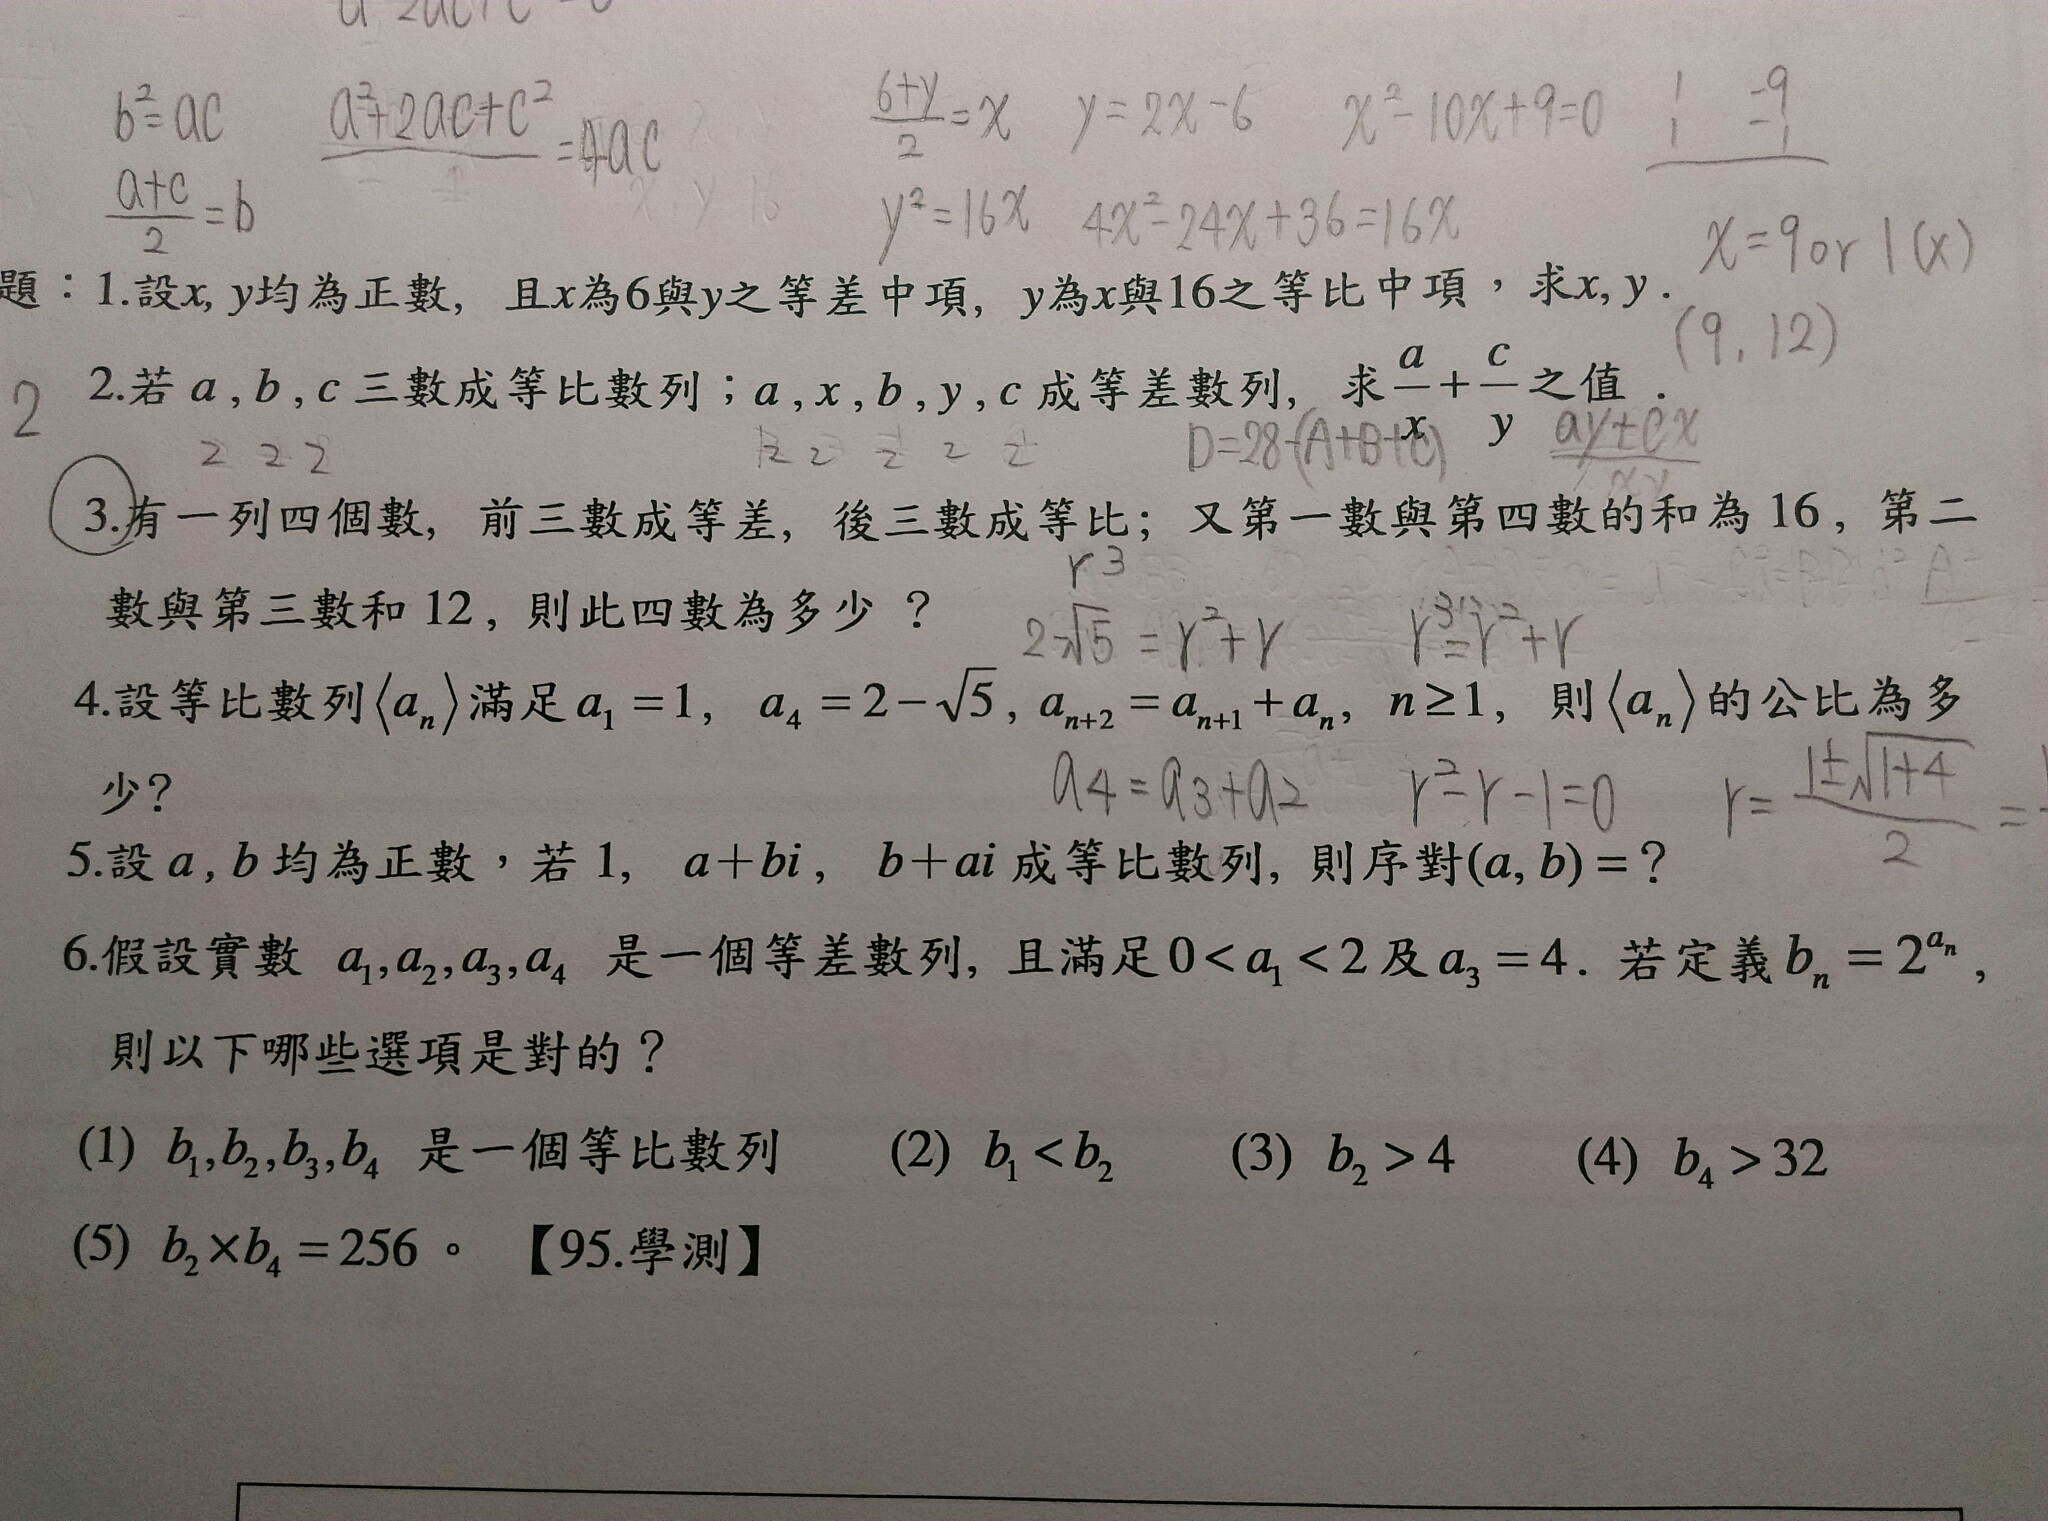 b²=ac a²+2ac+c² =4ac 6+y/2=x y=2x-6 x²-10x+9=0 1 -9
a+c/2=b y²=16x 4x²-24x+36=16x 1 -1
x=9 or 1(x)
題：1.設x, y均為正數, 且x為6與y之等差中項, y為x與16之等比中項，求x, y.
(9, 12)
2 2.若 a , b , c 三數成等比數列；a , x , b , y , c 成等差數列, 求 a/x + c/y 之值 .
2 2 2 D=28-(A+B+C) ay+cx/xy
3.有一列四個數, 前三數成等差, 後三數成等比; 又第一數與第四數的和為 16 , 第二
數與第三數和 12 , 則此四數為多少 ？
r³
2-√5 = r²+r r³=r²+r
4.設等比數列⟨aₙ⟩滿足 a₁ =1, a₄ =2-√5 , aₙ₊₂ = aₙ₊₁ + aₙ, n≥1, 則⟨aₙ⟩的公比為多
少?
a4=a3+a2 r²-r-1=0 r= 1±√1+4/2 =
5.設 a , b 均為正數，若 1, a+bi , b+ai 成等比數列, 則序對(a, b) = ?
6.假設實數 a₁,a₂,a₃,a₄ 是一個等差數列, 且滿足 0< a₁ <2 及 a₃ =4 . 若定義 bₙ = 2^aₙ ,
則以下哪些選項是對的？
(1) b₁,b₂,b₃,b₄ 是一個等比數列 (2) b₁ < b₂ (3) b₂ > 4 (4) b₄ > 32
(5) b₂×b₄ = 256 。 【95.學測】